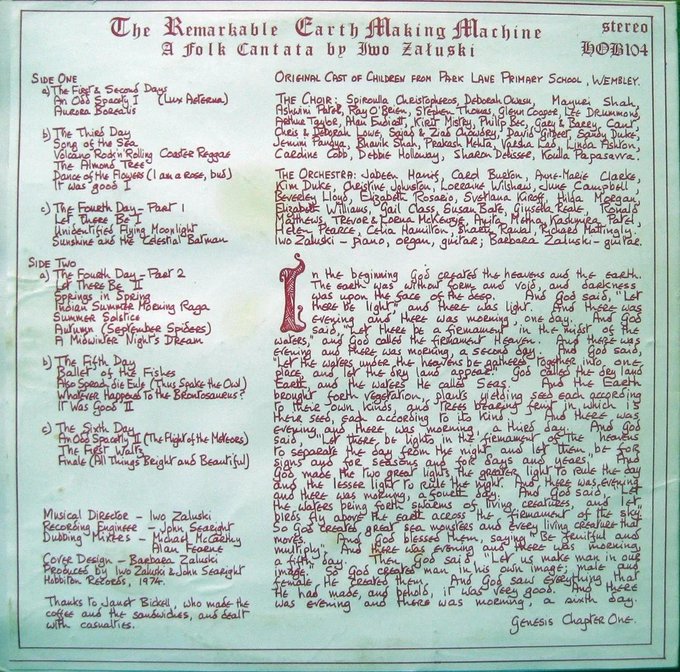 The Remarkable Earth Making Machine
A Folk Cantata by Iwo Załuski
stereo
HOB104
SIDE ONE
a) The First & Second Days
An Odd Spacety I (Lux Aeterna)
Aurora Borealis
b) The Third Day
Song of the Sea
Volcano Rock'n'Rolling Coaster Reggae
The Almond Tree
Dance of the Flowers (I am a rose, bud)
It was good I
c) The Fourth Day - Part 1
Let There Be I
Unidentified Flying Moonlight
Sunshine and the Celestial Batman
SIDE TWO
a) The Fourth Day - Part 2
Let There Be II
Springs in Spring
Indian Summer Morning Raga
Summer Solstice
Autumn (September Spiders)
A Midwinter Night's Dream
b) The Fifth Day
Ballet of the Fishes
Also Sprach die Eule (Thus Spake the Owl)
Whatever Happened to the Brontosaurus?
It Was Good II
c) The Sixth Day
An Odd Spacety II (The Flight of the Meteors)
The First Waltz
Finale (All Things Bright and Beautiful)
Musical Director - Iwo Zaluski
Recording Engineer - John Searight
Dubbing Mixers - Michael McCarthy
Alan Fearne
Cover Design - Barbara Zaluski
Produced by Iwo Zaluski & John Searight
Hobbiton Records, 1974.
Thanks to Janet Bickell, who made the
coffee and the sandwiches, and dealt
with casualties.
ORIGINAL CAST OF CHILDREN FROM PARK LANE PRIMARY SCHOOL, WEMBLEY.
THE CHOIR: Spiroulla Christopheros, Deborah Owusu, Mayuri Shah,
Ashwini Patel, Ray O'Brien, Stephen Thomas, Glenn Cooper, Lee Drummond,
Arthur Taylor, Alan Endicott, Kirit Mistry, Philip Bec, Gary & Barry Cant,
Chris & Deborah Lowe, Sajad & Ziad Chowdrey, David Gilbert, Sandy Duke,
Jemini Pandya, Bhavik Shah, Prakash Mehta, Varsha Lad, Linda Ashton,
Caroline Cobb, Debbie Holloway, Sharon Delisser, Koulla Papasavva.
THE ORCHESTRA: Jabeen Hanif, Carol Burton, Anne-Marie Clarke,
Kim Duke, Christine Johnston, Lorraine Wilshaw, June Campbell,
Beverley Lloyd, Elizabeth Rosario, Svetlana Kiroff, Hilda Morgan,
Elizabeth Williams, Gail Class, Susan Bate, Giuseta Reale, Ronald
Matthews, Trevor & Lorna McKenzie, Anita Metha, Kashmira Patel,
Helen Pearce, Celia Hamilton, Sharry Rawal, Richard Mattingly,
Iwo Zaluski - piano, organ, guitar; Barbara Zaluski - guitar.
In the beginning God created the heavens and the earth.
The earth was without form and void, and darkness
was upon the face of the deep. And God said, "Let
there be light"; and there was light. And there was
evening and there was morning, one day. And God
said, "Let there be a firmament in the midst of the
waters," and God called the firmament Heaven. And there was
evening and there was morning, a second day. And God said,
"Let the waters under the heavens be gathered together into one
place, and let the dry land appear." God called the dry land
Earth, and the waters He called Seas. And the Earth
brought forth vegetation, plants yielding seed each according
to their own kinds, and trees bearing fruit in which is
their seed, each according to its kind. And there was
evening and there was morning, a third day. And God
said, "Let there be lights in the firmament of the heavens
to separate the day from the night, and let them be for
signs and for seasons and for days and years. And
God made the two great lights, the greater light to rule the day
and the lesser light to rule the night. And there was evening
and there was morning, a fourth day. And God said, "Let
the waters bring forth swarms of living creatures, and let
birds fly above the earth across the firmament of the sky.
So God created great sea monsters and every living creature that
moves. And God blessed them, saying "Be fruitful and
multiply". And there was evening and there was morning,
a fifth day. Then God said, "Let us make man in our
image." So God created man in his own image; male and
female He created them. And God saw everything that
He had made, and behold, it was very good. And there
was evening and there was morning, a sixth day.
Genesis Chapter One.